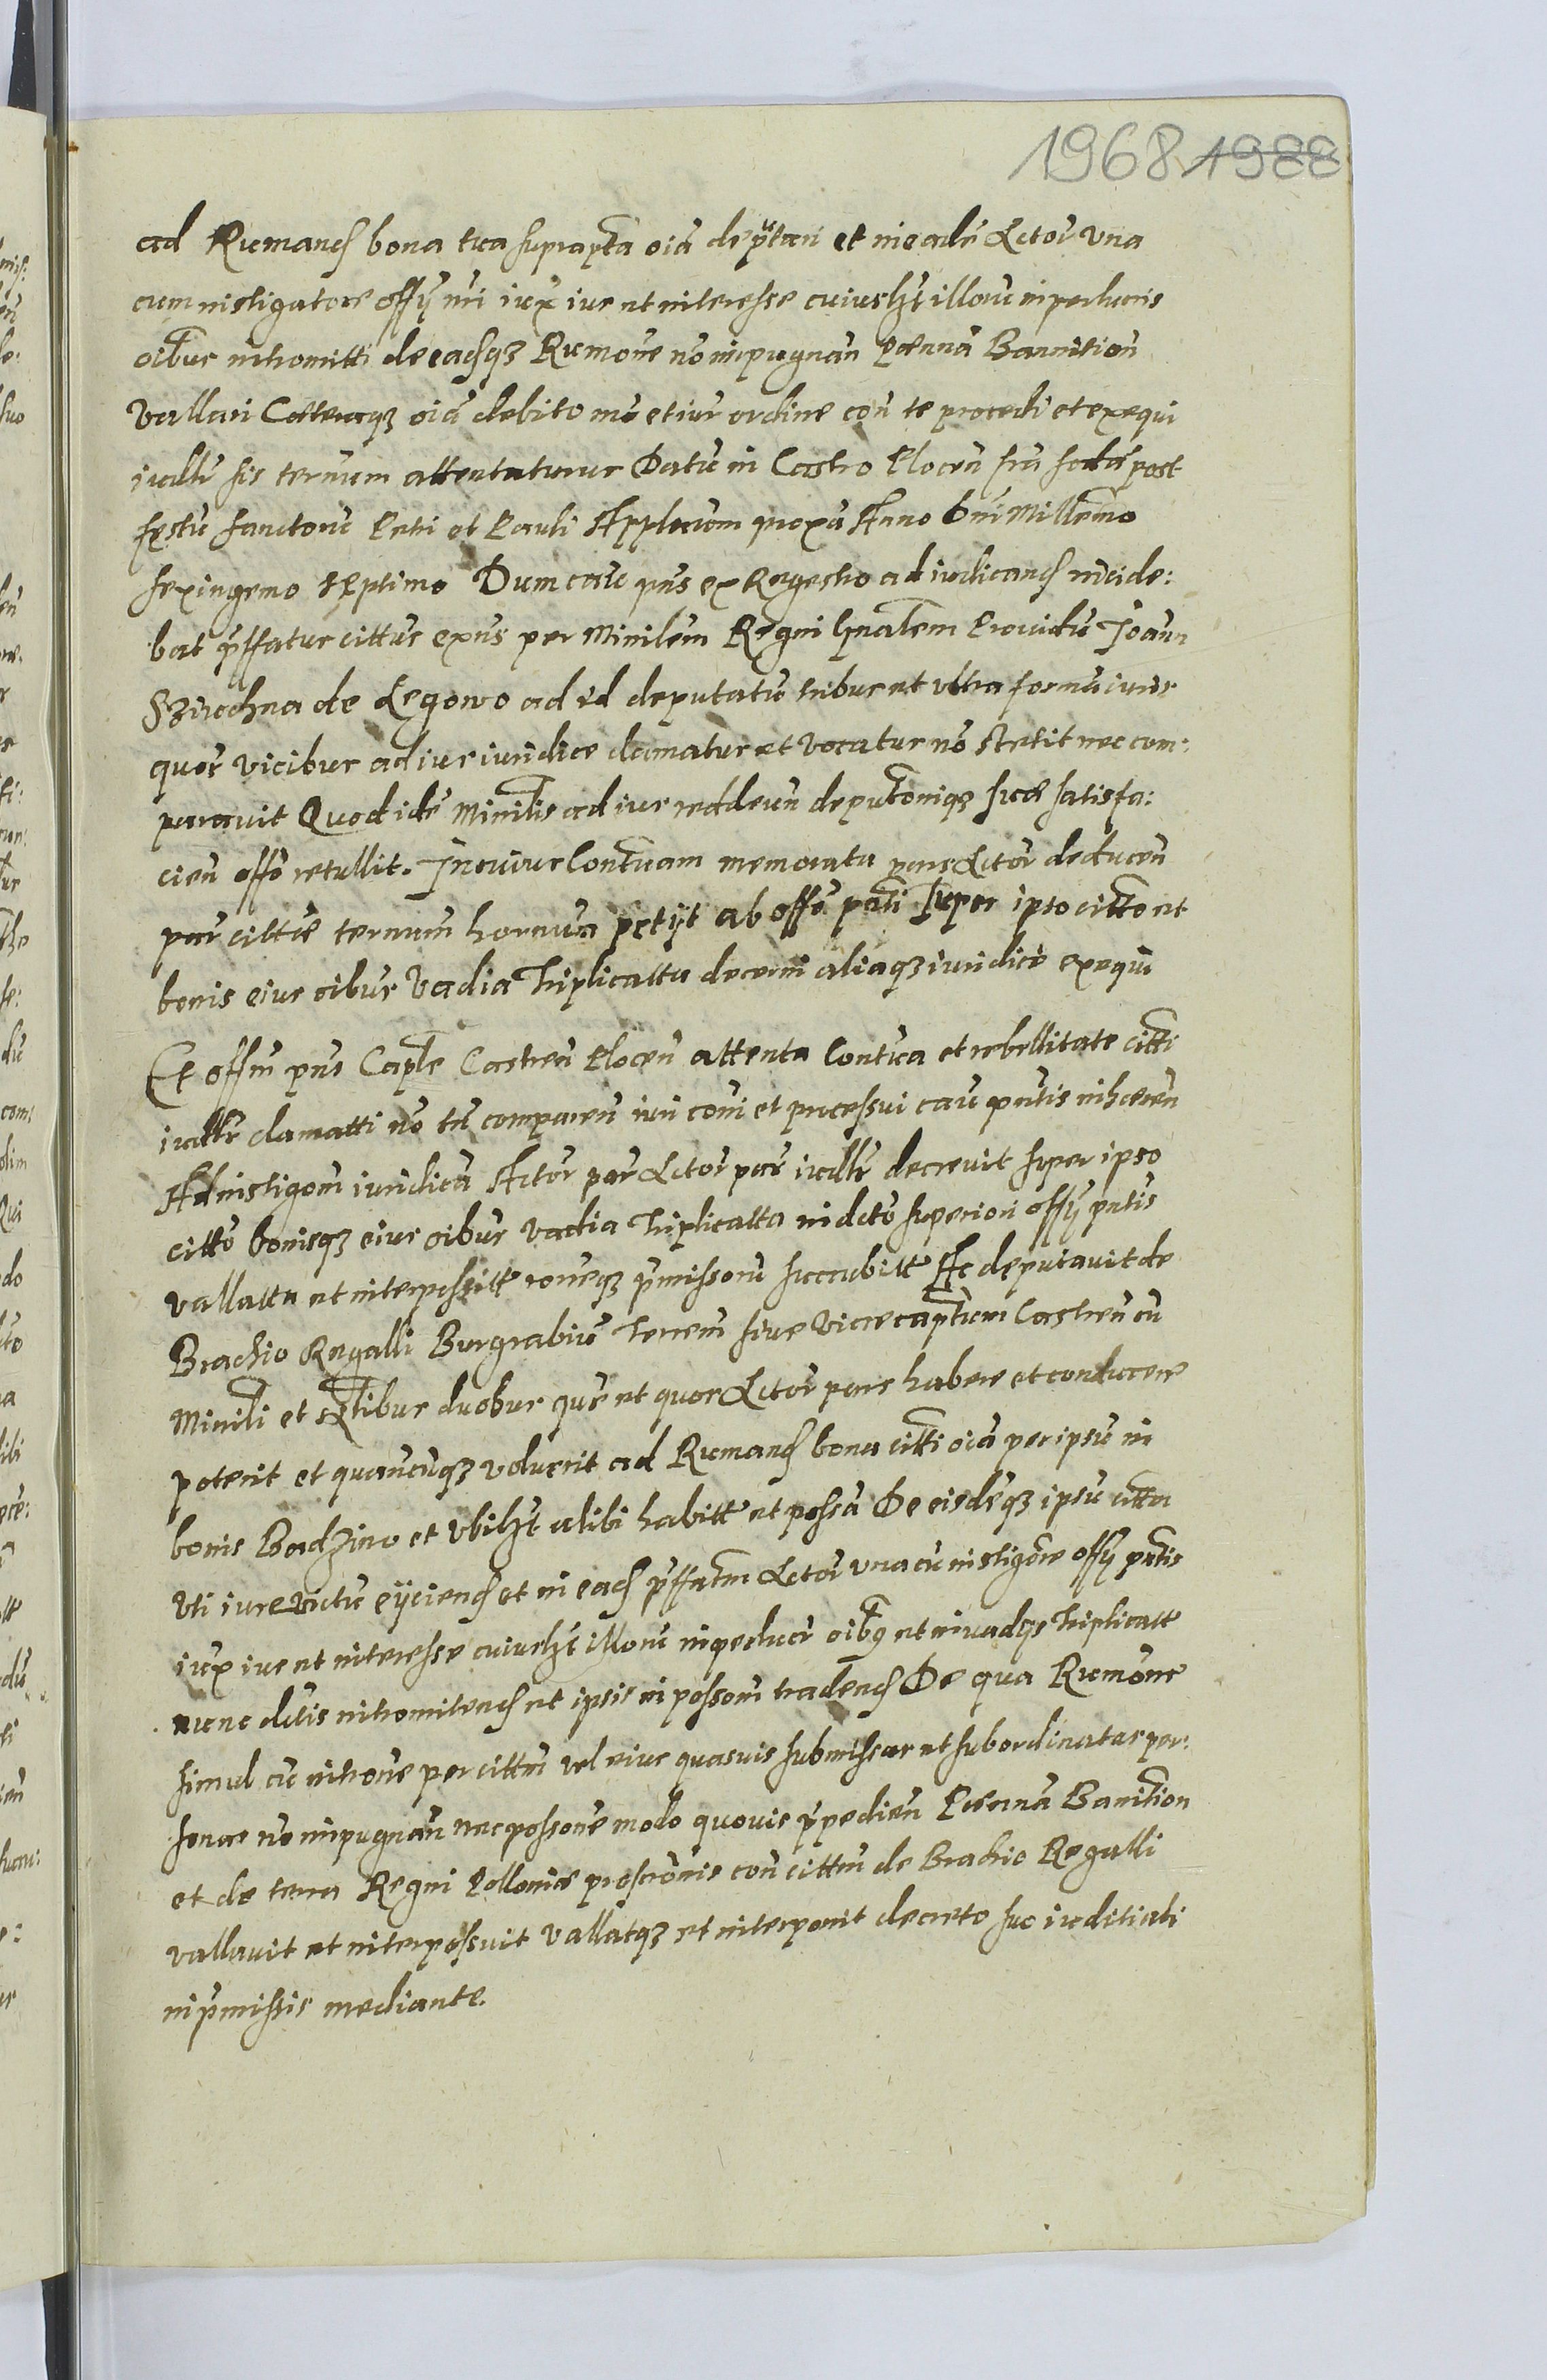 1968 1988
ad Rumand bona tua suprapta oia deputari et in eade Actor una
cum instigatore offij nri iux ius et interesse cuiuslzt illoru imperturis
oibus intromitti de eadqz Rumone no impugnan Paenna Bannition
vallari Cetteraqz oia debito mo et iur ordine con te procedi et exequi
iudli sis termum attentaturus Datu in Castro Plocen fra scda post
festu sanctoru Petri et Pauli Applorum proxa Anno Dni Millemo
sexingemo septimo Dum cau pns ex Regestro ad iudicand incide:
bat pffatus cittus exns per Minilem Regni Gnalem Providu Joann
Szirochna de Legowo ad id deputatu tribus et ultra formu iuris
quor vicibus ad ius iuridice clamatus et vocatus no stetit nec com:
paravit Quod ide Minilis ad ius reddeun deputoniqz suae satisfa:
cien offo retullit. In cuius Contuam memorata pars Actor deducen
par cittae termum hornum petijt ab offo pnti super ipso citto et
bonis eius oibus vadia triplicatta decerni aliaqz iuridice exequi
Et offm pns Caple Castren Plocen attenta Contua et rebellitate citti
iudlr clamatti no tn comparen iuri coni et processui cau pntis inhaeren
Ad instigom iuridica Actor par Actor par iudlr decrevit super ipso
citto bonisqz eius oibus vadia triplicatta in dcto superiori offij pntis
vallatta et interpositt roneqz pmissoru succubitt Ac deputavit de
Brachio Regalli Burgrabiu Terrem sive Vicecaptum Castren cu
Minili et Nlibus duobus que et quos Actor pars habere et conducere
poterit et quancuqz voluerit ad Rumand bona citti oia per ipsu in
bonis Badzino et ubilzt alibi habitt et possa De eisdeqz ipsu citta
uti iure victu eijciend et in ead pffatm Actor una cu instigore offij pntis
iux ius et interesse cuiuslzt illoru inpeduci oibq et in vadqs triplicatt
nunc dctis intromitend et ipsis in possom tradend De qua Rumone
simul cu introne per cittm vel eius quasvis submissas et subordinatas per:
sonas no impugnan nec possone modo quovis ppedien Paenna Bannition
et de terra Regni Polloniae proscronis con cittm de Brachio Regalli
vallavit et interpossuit vallatqz et interponit decreto suo iuditiali
in pmissis mediante.